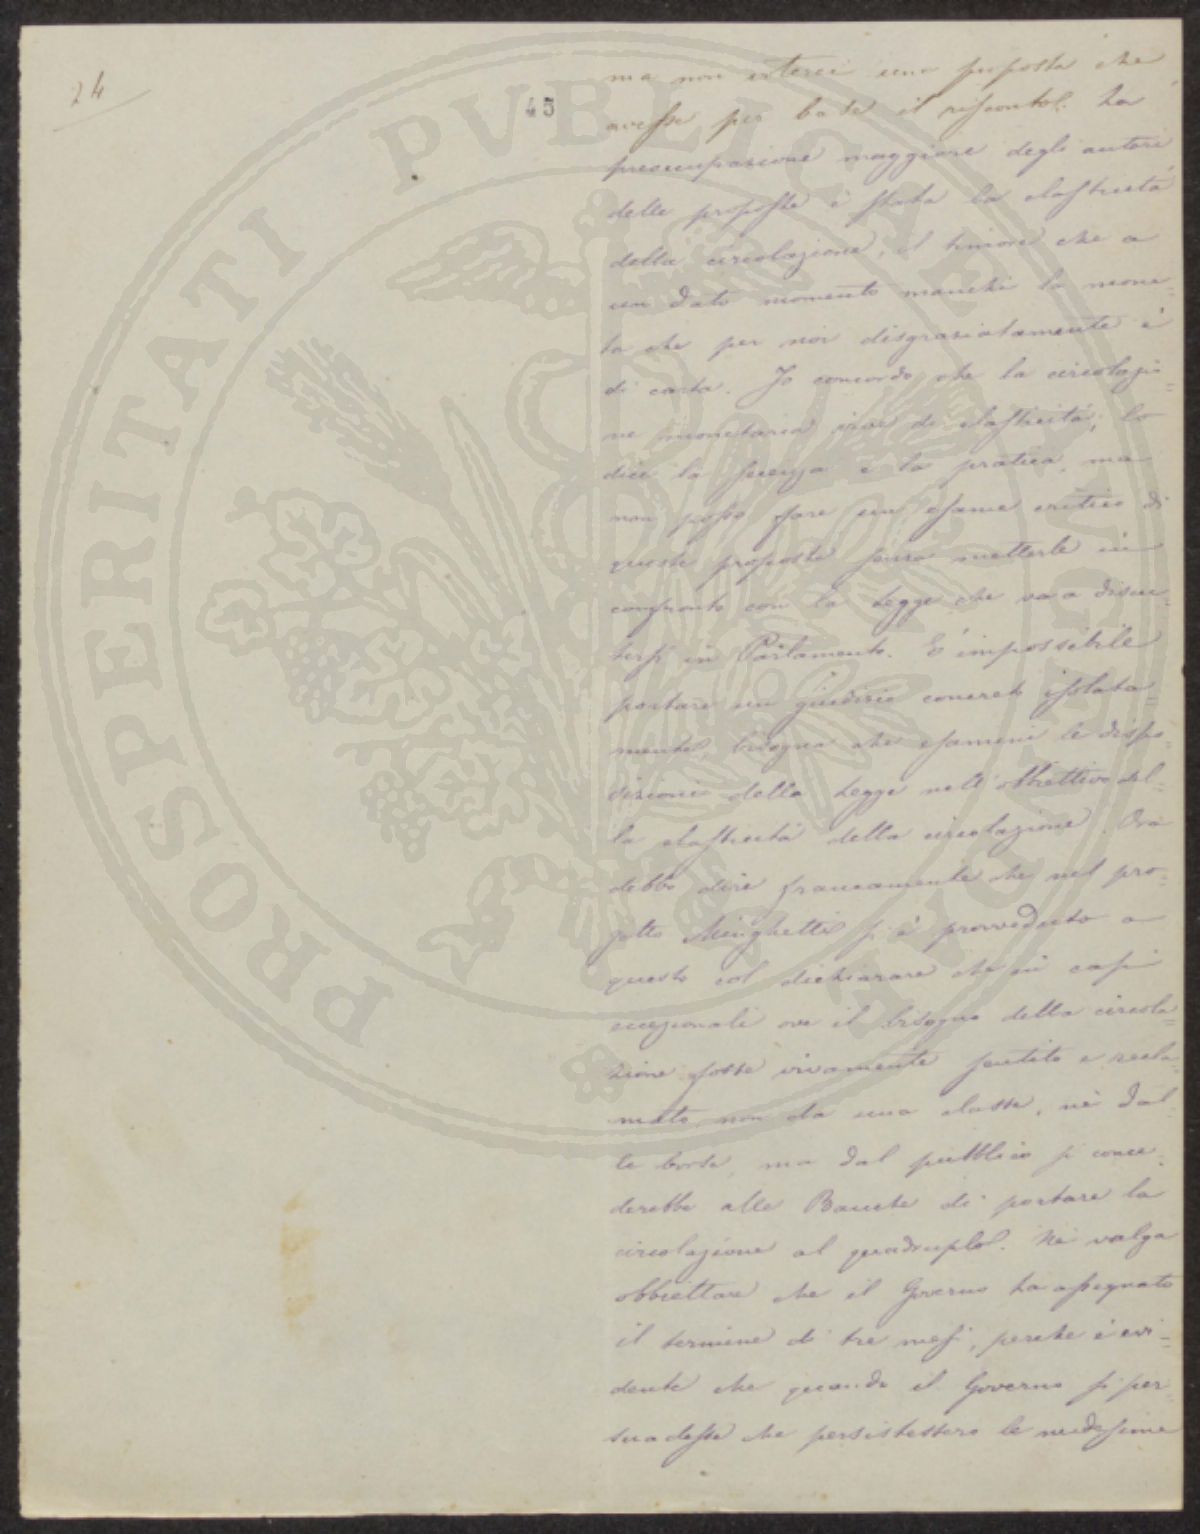 24
45
ma non esterei una proposta che
avesse per base il riscontol. La
preoccupazione maggiore degli autori
delle proposte è stata la elasticità
della circolazione, il timore che a
un dato momento manchi la mone-
ta che per noi disgraziatamente è
di carta. Io concordo che la circolazio=
ne monetaria di elasticità, lo
dice la scienza e la pratica, ma
non posso fare un esame critico di
queste proposte senza metterle in
confronto con la Legge che va a discu-
tersi in Parlamento. E' impossibile
portare un giudizio concreto isolata=
mente, bisogna che esamini le dispo-
sizioni della Legge nell'obbiettivo del=
la elasticità della circolazione. Ora
debbo dire francamente che nel pro-
getto Minghetti si è provveduto a
questo col dichiarare che in casi
eccezionali ove il bisogno della circola=
zione fosse vivamente sentito e recla=
mato non da una classe, nè dal
le borse, ma dal pubblico si conce-
derebbe alle Banche di portare la
circolazione al quadruplo. Nè valga
obbiettare che il Governo ha assegnato
il termine di tre mesi, perchè è evi=
dente che quando il Governo si per
suadesse che persistessero le medesime
PROSPERITATI PVBLICAE AVGENDAE